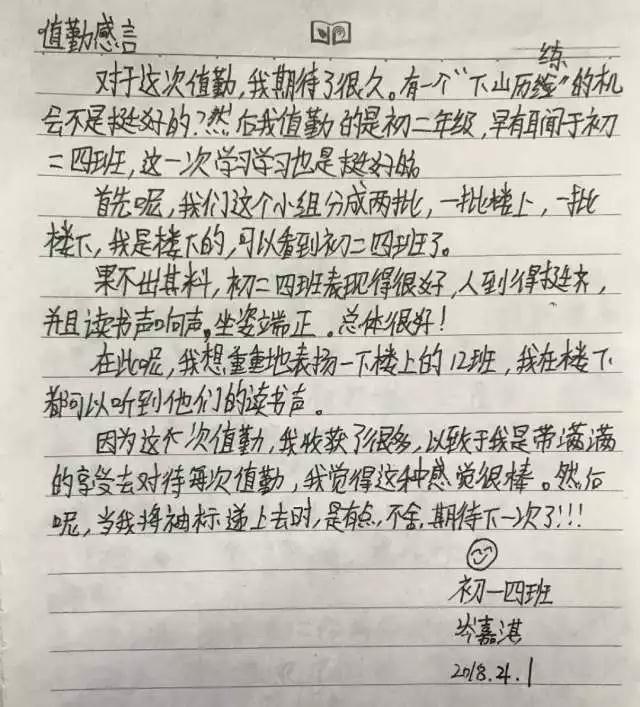 值勤感言
练
对于这次值勤,我期待了很久。有一个“下山历练”的机
会不是挺好的?然后我值勤的是初二年级,早有耳闻于初
二四班,这一次学习学习也是挺好的。
首先呢,我们这个小组分成两批,一批楼上,一批
楼下,我是楼下的,可以看到初二四班了。
果不出其料,初二四班表现得很好,人到得挺齐,
并且读书声响声,坐姿端正。总体很好!
在此呢,我想重重地表扬一下楼上的12班,我在楼下
都可以听到他们的读书声。
因为这个次值勤,我收获了很多,以致于我是带满满
的享受去对待每次值勤,我觉得这种感觉很棒。然后
呢,当我将袖标递上去时,是有点不舍,期待下一次了!!!
初一四班
岑嘉淇
2018.4.1